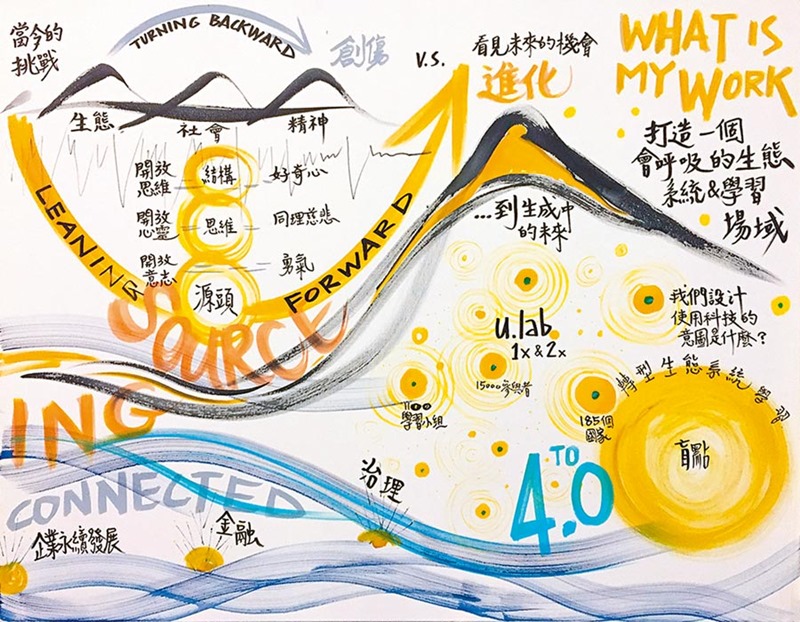 當今的
挑戰
TURNING BACKWARD
創傷
V.S.
看見未來的機會
進化
WHAT IS
MY WORK
生態
社會
精神
打造一個
會呼吸的生態
系統&學習
場域
開放
思維
結構
好奇心
開放
心靈
思維
同理慈悲
開放
意志
源頭
勇氣
LEANING
FORWARD
...到生成中
的未來
SOURCE
ING
u.lab
1x & 2x
我們設計
使用科技的
意圖是什麼?
15000參與者
學習小組
185個
國家
型生態系統學習
盲點
4.0
TO
CONNECTED
治理
金融
企業永續發展